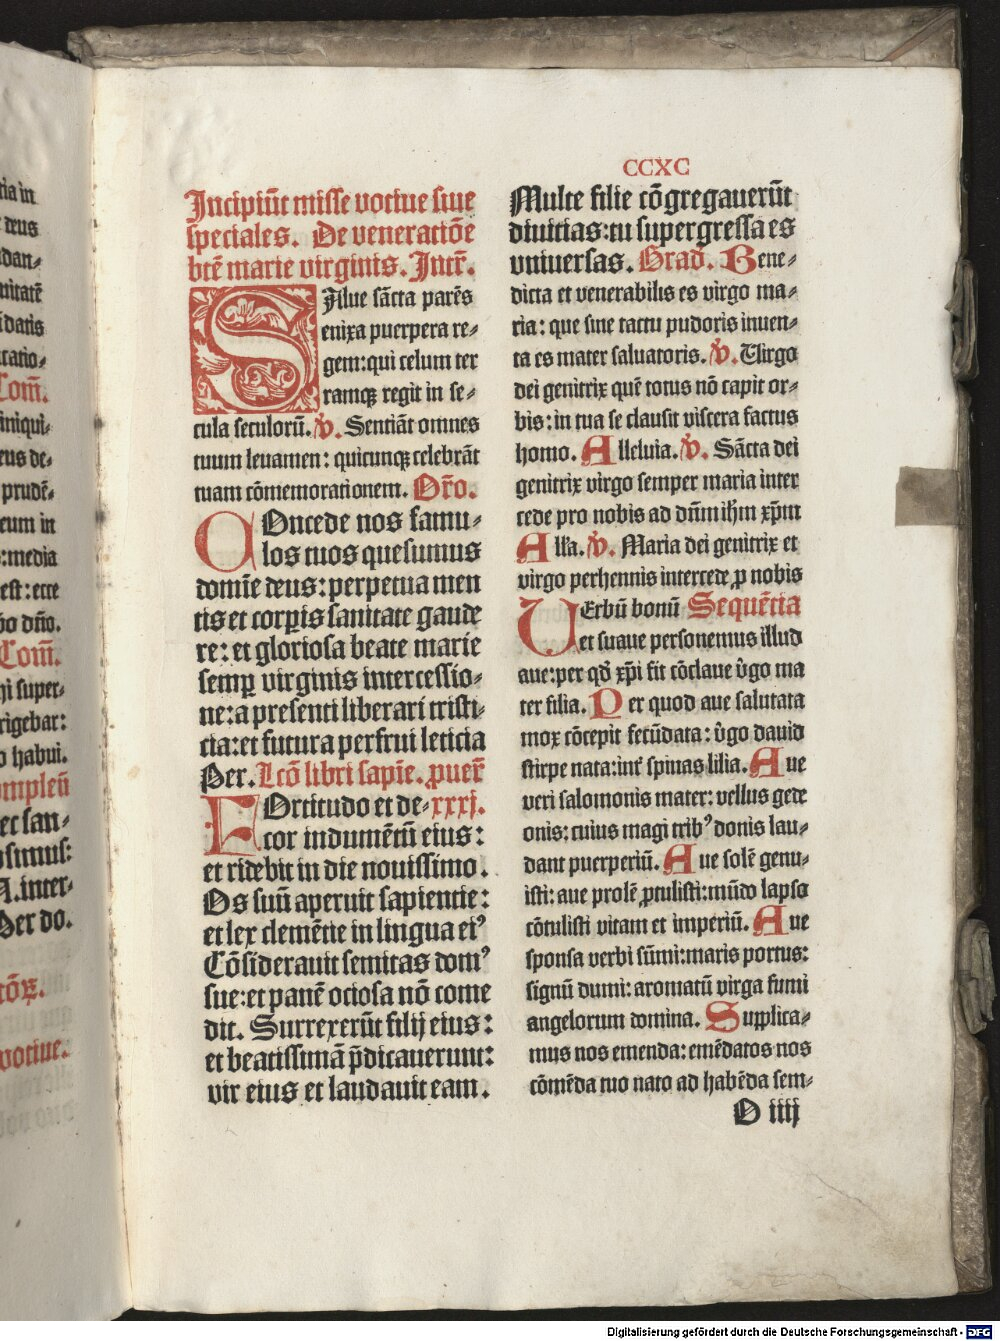 tia in
deus
dan⸗
nitatē
datis
catio⸗
Com̄.
iniqui⸗
eus de⸗
prudē⸗
eum in
:media
est: ecce
dño.
Com̄.
super⸗
rigebar:
habui.
ompleñ
et san⸗
simus:
A. inter⸗
Per do.
votiue.
Incipiūt misse votiue siue
speciales. De veneratiōe
btē marie virginis. Intr̄.
SAlue sācta parēs
enixa puerpera re⸗
gem: qui celum ter
ramqꝫ regit in se⸗
cula seculorū. ℣. Sentiāt omnes
tuum leuamen: quicunqꝫ celebrāt
tuam cōmemorationem. Or̄o.
COncede nos famu⸗
los tuos quesumus
domīe deus: perpetua men
tis et corpꝑis sanitate gaude
re: et gloriosa beate marie
semꝑ virginis intercessio⸗
ne: a presenti liberari tristi⸗
cia: et futura perfrui leticia
Per. Lcō libri sapīe. ꝓuer̄
FOrtitudo et de⸗ xxxj.
cor indumētū eius:
et ridebit in die nouissimo.
Os suū aperuit sapientie:
et lex clemētie in lingua eiꝰ
Cōsiderauit semitas domꝰ
sue: et panē ociosa nō come
dit. Surrexerūt filij eius:
et beatissimā p̄dicauerunt:
vir eius et laudauit eam.
CCXC
Multe filie cōgregauerūt
diuitias: tu supergressa es
vniuersas. Grad. Bene⸗
dicta et venerabilis es virgo ma⸗
ria: que sine tactu pudoris inuen⸗
ta es mater saluatoris. ℣. Virgo
dei genitrix quē totus nō capit or⸗
bis: in tua se clausit viscera factus
homo. Alleluia. ℣. Sācta dei
genitrix virgo semper maria inter
cede pro nobis ad dn̄m ih̄m xp̄m
All'a. ℣. Maria dei genitrix et
virgo perhennis intercede ꝓ nobis
VErbū bonū Sequētia
et suaue personemus illud
aue: per qd̄ xp̄i fit cōclaue v̄go ma
ter filia. Per quod aue salutata
mox cōcepit fecūdata: v̄go dauid
stirpe nata: int̄ spinas lilia. Aue
veri salomonis mater: vellus gede
onis: cuius magi tribꝰ donis lau⸗
dant puerperiū. Aue solē genu⸗
isti: aue prolē ꝓtulisti: mūdo lapso
cōtulisti vitam et imperiū. Aue
sponsa verbi sūmi: maris portus:
signū dumi: aromatū virga fumi
angelorum domina. Supplica⸗
mus nos emenda: emēdatos nos
cōmēda tuo nato ad habēda sem⸗
O iiij
Digitalisierung gefördert durch die Deutsche Forschungsgemeinschaft - DFG